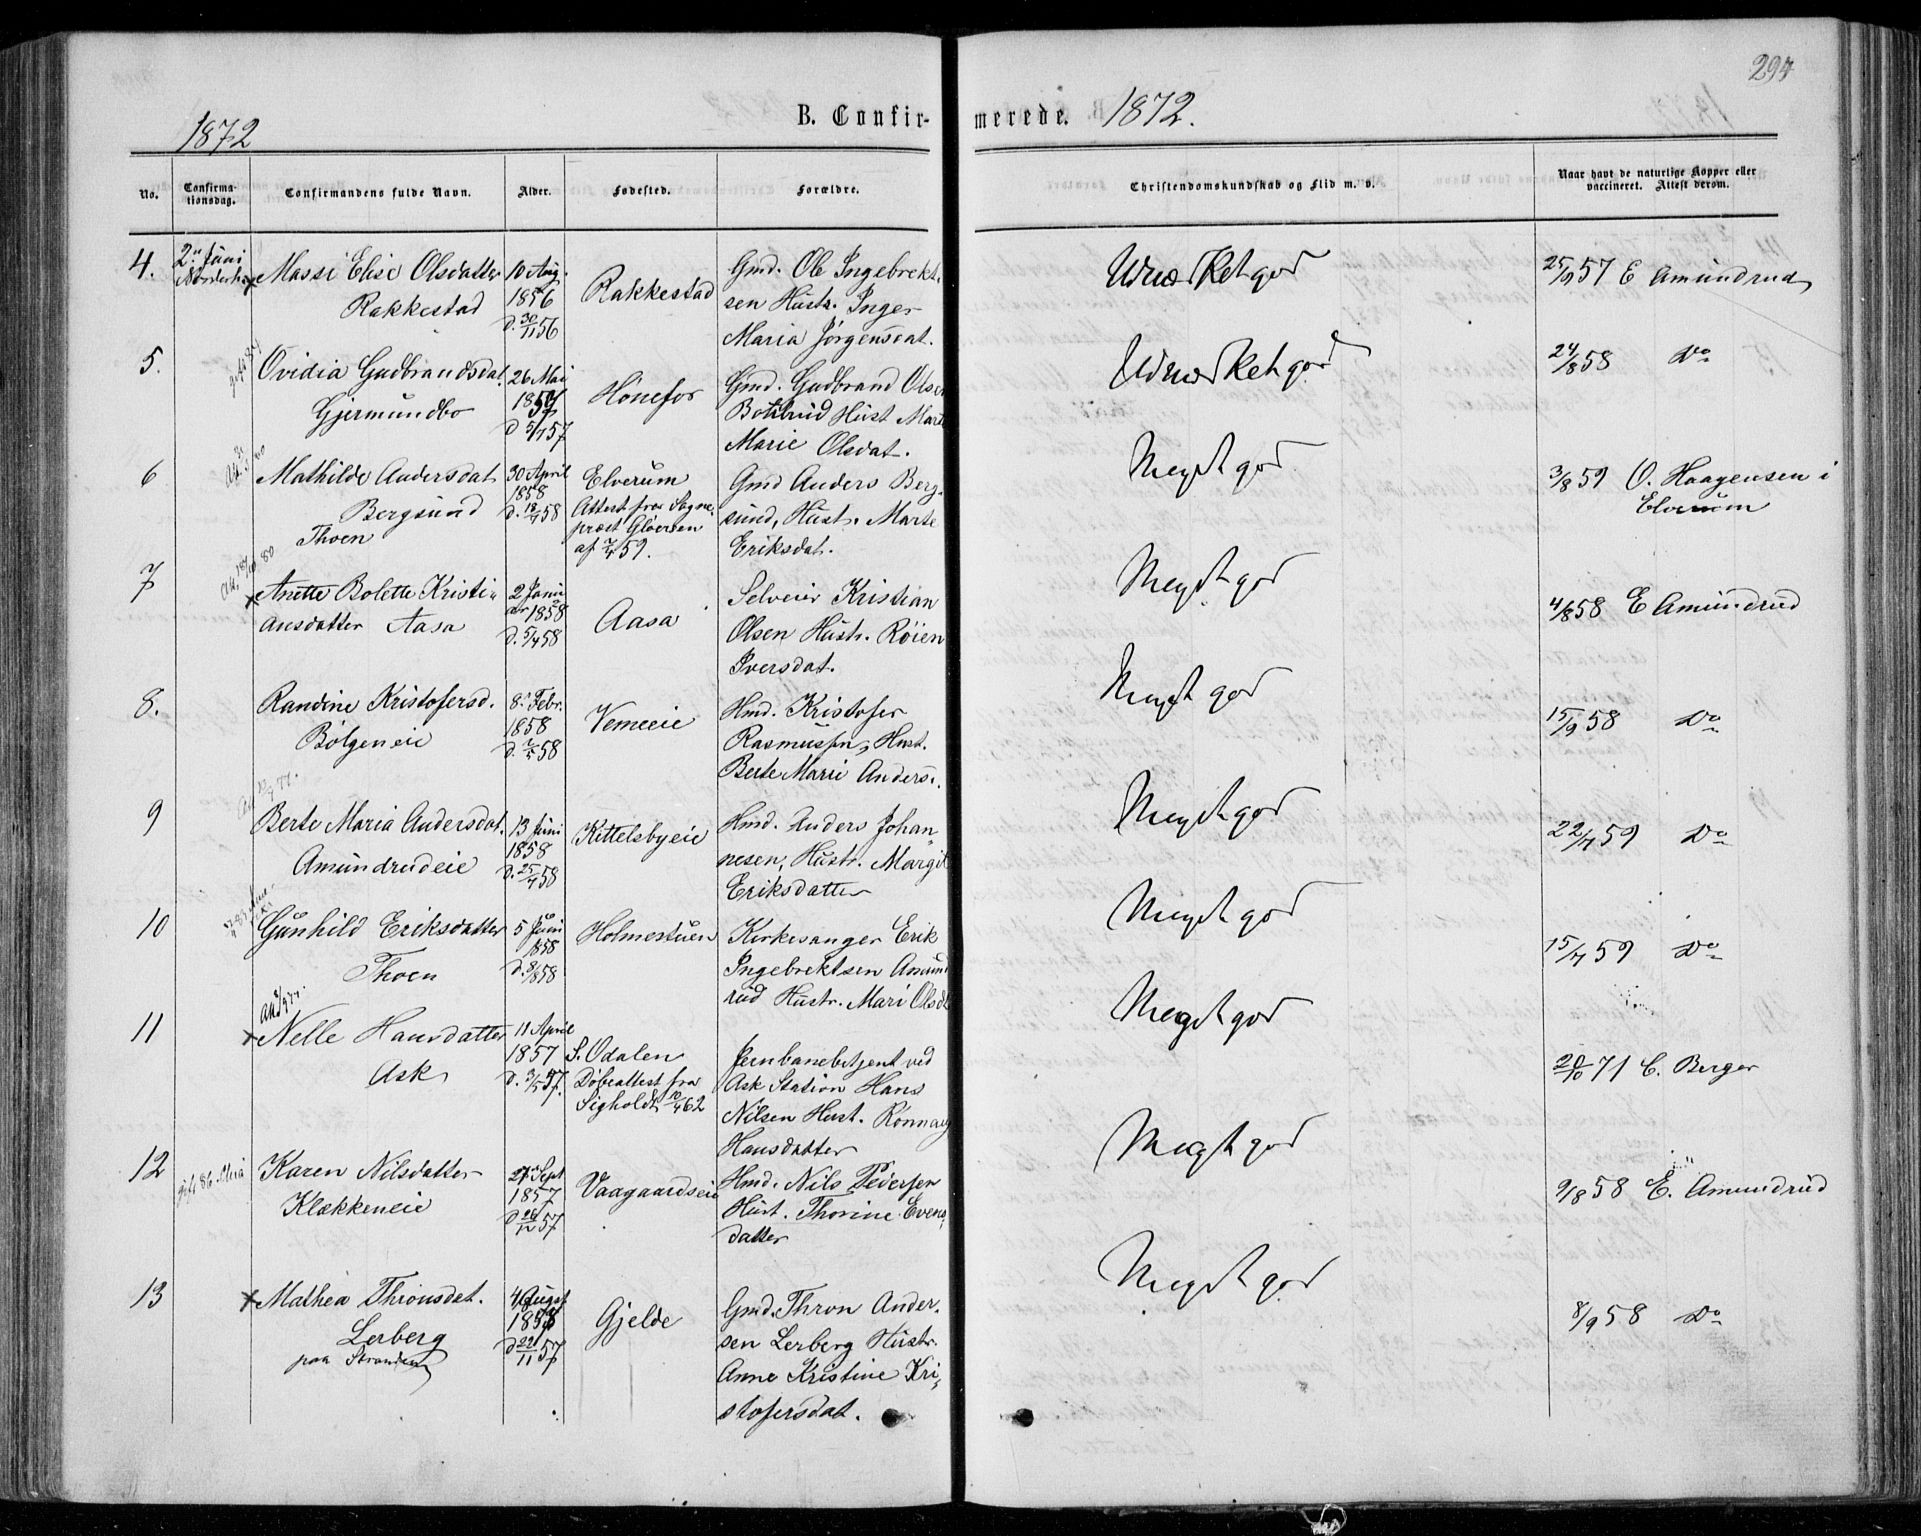 294
1872
B. Confir-
merede. 1872.
No.
Confirma-
tionsdag.
Confirmandens fulde Navn.
Alder.
Fødested.
Forældre.
Christendomskundskab og Flid m. v.
Naar havt de naturlige Kopper eller
vaccineret. Attest derom.
4.
2den Juni
Norderhov
Massi Elise Olsdatter
Rakkestad
10 Aug.
1856
d. 30/11 56
Rakkestad
Gmd. Ole Ingebrekt-
sen Hustr. Inger
Maria Jørgensdat.
Udmærket god
25/9 57 E Amundrud
5.
gift 84
Ovidia Gudbrandsdat.
Gjermundbo
26 Mai
1857
d 5/7 57
Hønefos
Gmd. Gudbrand Olsen
Hust Marte
Marie Olsdat.
Udmærket god
24/8 58 Do
6
Mathilde Andersdat
Bergsund
Thoen
30 April
1858
d. 18/7 58
Elverum
Attest fra Sogne
præst Gløersen
af 7/4 59.
Gmd Anders Berg-
sund, Hustr. Marte
Eriksdat.
Meget god
3/8 59 O. Haagensen i
Elverum
7
Anette Bolette Kristi-
ansdatter Aasa
2 Juni
1858
d. 5/4 58
Aasa
Selveier Kristian
Olsen Hustr. Røien
Iversdat.
Meget god
4/8 58 E Amundrud
8.
Randine Kristofersd.
Bølgeneie
8 Febr.
1858
d. 2/5 58
Vemeeie
Hmd. Kristofer
Rasmussen, Hust.
Berte Marie Anders.
Meget god
15/9 58 Do
9
Berte Maria Andersdat.
Amundrudeie
13 Juni
1858
d. 25/7 58
Kittelsbyeie
Hmd. Anders Johan-
nesen, Hustr. Margit
Eriksdatter
Meget god
22/7 59 Do
10
Gunhild Eriksdatter
Thoen
5 Juni
1858
d. 8/8 58
Holmenstuen
Kirkesanger Erik
Ingebrektsen Amund
rud Hustr. Mari Olsdt
Meget god
15/7 59 Do
11
Nelle Hansdatter
Ask
11 April
1857
d. 3/5 57.
S. Odalen
Døbeattest fra
Sigholdt 10/4 62
Jernbanebetjent ved
Ask Station Hans
Nilsen Hust. Rønnaug
Hansdatter
Meget god
20/10 71 C. Berger
12
gift 86
Karen Nilsdatter
Klækkeneie
27 Sept
1857
d 26/12 57
Vaagaardseie
Hmd. Nils Pedersen
Hust. Thorine Evens-
datter
Meget god
9/8 58 E. Amundrud
13
Mathea Thronsdat.
Lerberg
paa Stranden
4 August
1857
d 29/11 57
Gjelde
Gmd. Thron Ander-
sen Lerberg Hustr.
Anne Kristine Kri-
stofersdat.
Meget god
8/9 58 Do